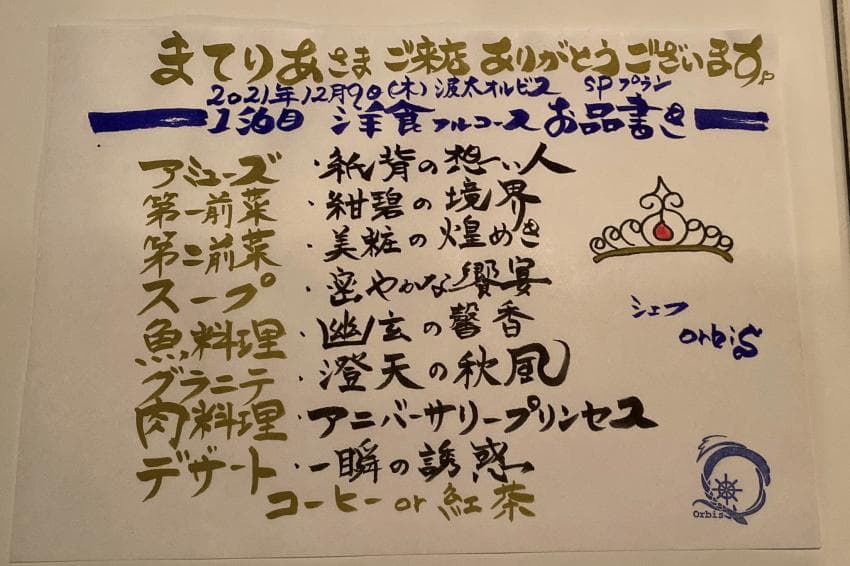 まてりあさま ご来店 ありがとうございます。
2021年12月9日(木) 波太オルビス SPプラン
1泊目 洋食フルコース お品書き
アミューズ ・紙背の想い人
第一前菜 ・紺碧の境界
第二前菜 ・美粧の煌めき
スープ ・密やかな饗宴
魚料理 ・幽玄の馨香
グラニテ ・澄天の秋風
肉料理 ・アニバーサリープリンセス
デザート ・一瞬の誘惑
コーヒー or 紅茶
シェフ
orbis
Orbis